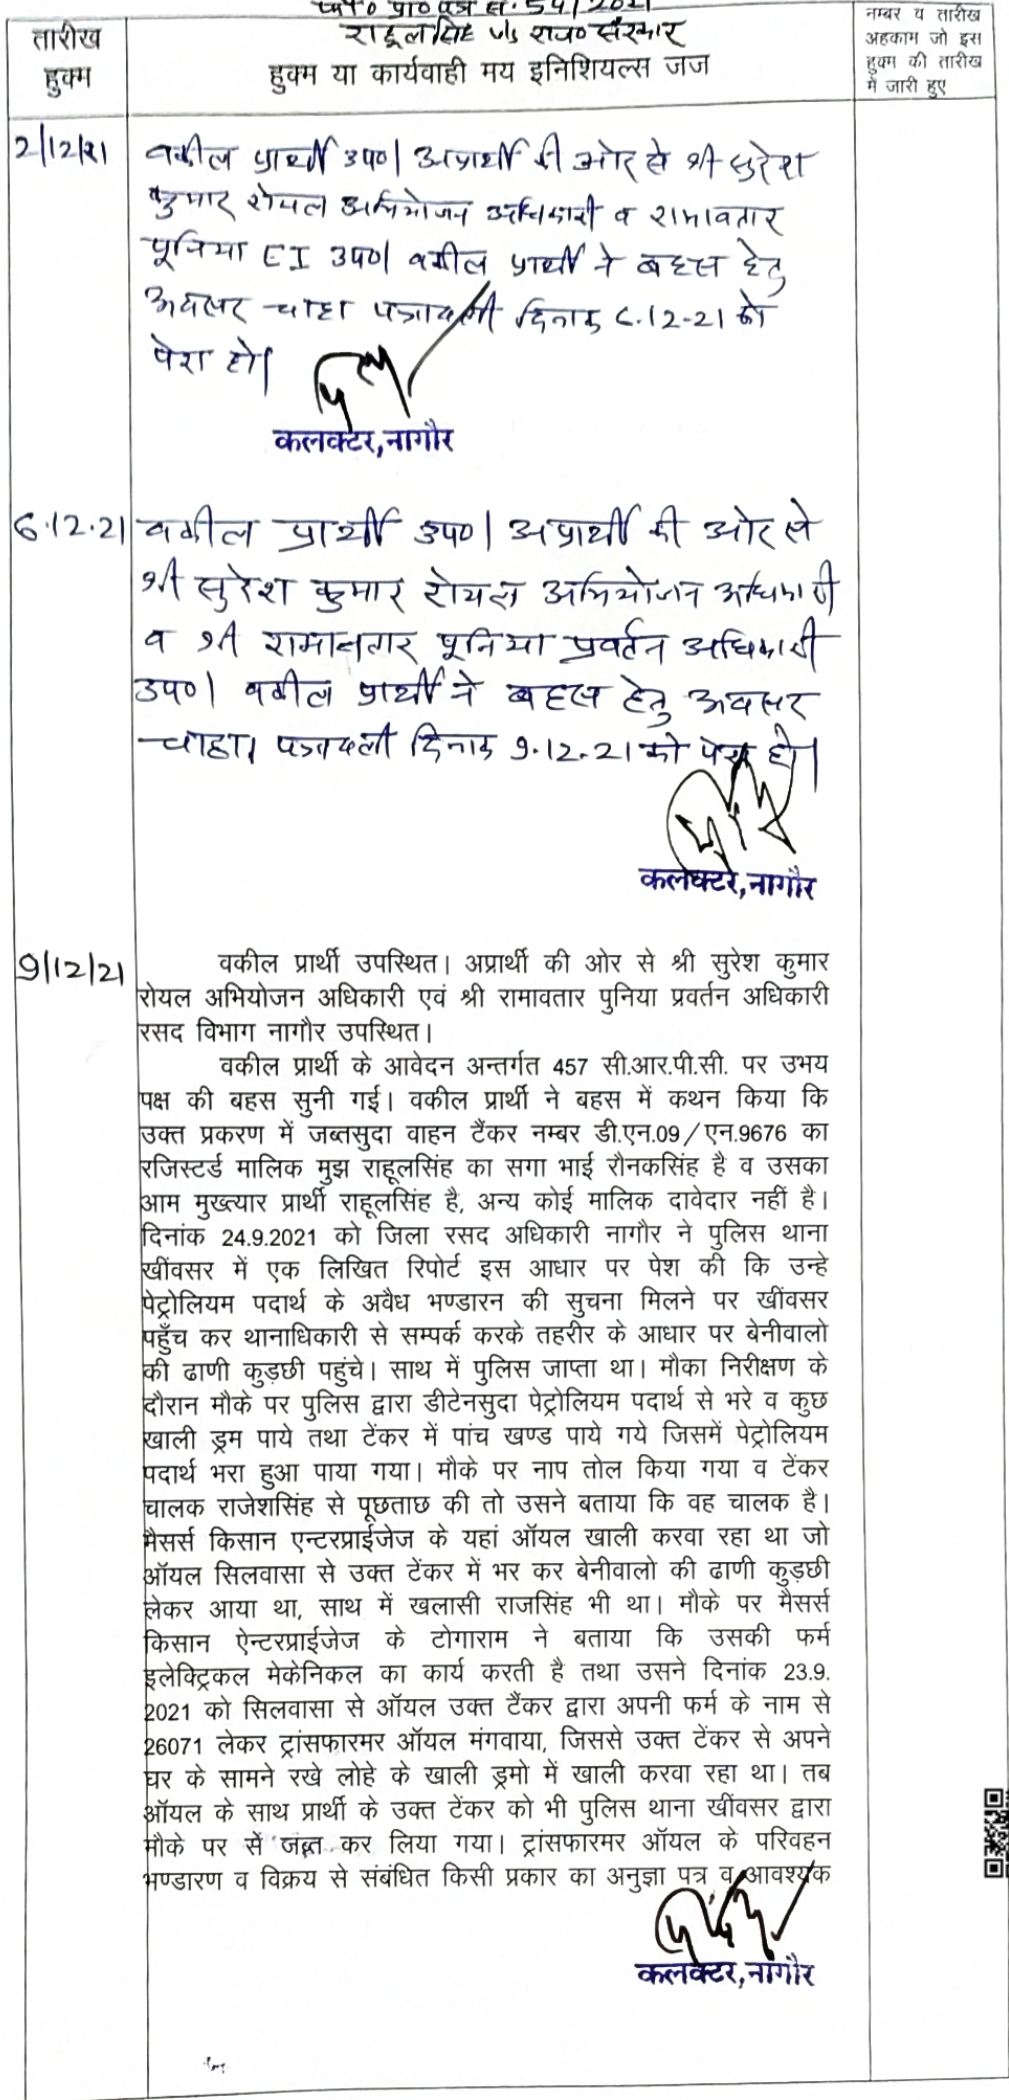 प्रा० पत्र सं. 54/2021
राहूलसिंह v/s राज० सरकार
तारीख
हुक्म
हुक्म या कार्यवाही मय इनिशियल्स जज
नम्बर व तारीख
अहकाम जो इस
हुक्म की तारीख
में जारी हुए
2/12/21
वकील प्रार्थी उप०| अप्रार्थी की ओर से श्री सुरेश
कुमार रोयल अभियोजन अधिकारी व रामावतार
पूनिया EI उप०| वकील प्रार्थी ने बहस हेतु
अवसर चाहा पत्रावली दिनांक 6.12-21 को
पेश हो|
कलक्टर,नागौर
6.12.21
वकील प्रार्थी उप०| अप्रार्थी की ओर से
श्री सुरेश कुमार रोयल अभियोजन अधिकारी
व श्री रामावतार पूनिया प्रवर्तन अधिकारी
उप०| वकील प्रार्थी ने बहस हेतु अवसर
चाहा। पत्रावली दिनांक 9.12.21 को पेश हो|
कलक्टर,नागौर
9/12/21
वकील प्रार्थी उपस्थित। अप्रार्थी की ओर से श्री सुरेश कुमार
रोयल अभियोजन अधिकारी एवं श्री रामावतार पुनिया प्रवर्तन अधिकारी
रसद विभाग नागौर उपस्थित।
वकील प्रार्थी के आवेदन अन्तर्गत 457 सी.आर.पी.सी. पर उभय
पक्ष की बहस सुनी गई। वकील प्रार्थी ने बहस में कथन किया कि
उक्त प्रकरण में जब्तसुदा वाहन टैंकर नम्बर डी.एन.09/एन.9676 का
रजिस्टर्ड मालिक मुझ राहूलसिंह का सगा भाई रौनकसिंह है व उसका
आम मुख्त्यार प्रार्थी राहूलसिंह है, अन्य कोई मालिक दावेदार नहीं है।
दिनांक 24.9.2021 को जिला रसद अधिकारी नागौर ने पुलिस थाना
खींवसर में एक लिखित रिपोर्ट इस आधार पर पेश की कि उन्हे
पेट्रोलियम पदार्थ के अवैध भण्डारन की सुचना मिलने पर खींवसर
पहुँच कर थानाधिकारी से सम्पर्क करके तहरीर के आधार पर बेनीवालो
की ढाणी कुड़छी पहुंचे। साथ में पुलिस जाप्ता था। मौका निरीक्षण के
दौरान मौके पर पुलिस द्वारा डीटेनसुदा पेट्रोलियम पदार्थ से भरे व कुछ
खाली ड्रम पाये तथा टेंकर में पांच खण्ड पाये गये जिसमें पेट्रोलियम
पदार्थ भरा हुआ पाया गया। मौके पर नाप तोल किया गया व टेंकर
चालक राजेशसिंह से पूछताछ की तो उसने बताया कि वह चालक है।
मैसर्स किसान एन्टरप्राईजेज के यहां ऑयल खाली करवा रहा था जो
ऑयल सिलवासा से उक्त टेंकर में भर कर बेनीवालो की ढाणी कुड़छी
लेकर आया था, साथ में खलासी राजसिंह भी था। मौके पर मैसर्स
किसान ऐन्टरप्राईजेज के टोगाराम ने बताया कि उसकी फर्म
इलेक्ट्रिकल मेकेनिकल का कार्य करती है तथा उसने दिनांक 23.9.
2021 को सिलवासा से ऑयल उक्त टैंकर द्वारा अपनी फर्म के नाम से
26071 लेकर ट्रांसफारमर ऑयल मंगवाया, जिससे उक्त टेंकर से अपने
घर के सामने रखे लोहे के खाली ड्रमो में खाली करवा रहा था। तब
ऑयल के साथ प्रार्थी के उक्त टेंकर को भी पुलिस थाना खींवसर द्वारा
मौके पर से जब्त कर लिया गया। ट्रांसफारमर ऑयल के परिवहन
भण्डारण व विक्रय से संबंधित किसी प्रकार का अनुज्ञा पत्र व आवश्यक
कलक्टर,नागौर